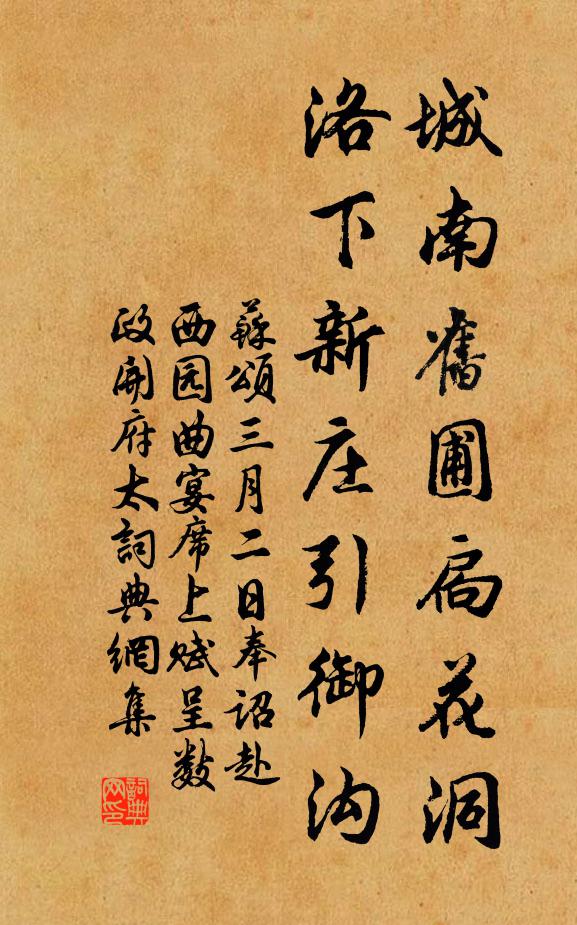 城南舊圃扃花洞
洛下新庄引御沟
蘇頌三月二日奉诏赴
西园曲宴席上赋呈数
政開府太詞典網集
詞典网印